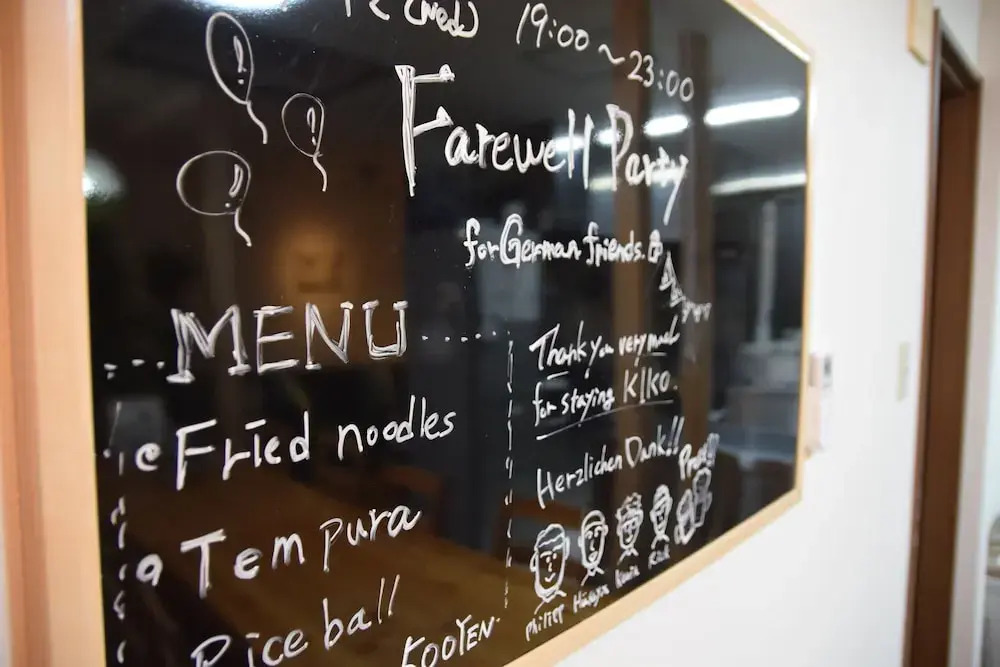 (Wed) 19:00~23:00
Farewell Party
for German friends.
MENU
Fried noodles
Tempura
Rice ball
500YEN.
Thank you very much
for staying KIKO.
Herzlichen Dank!!
Prost!!
Philipp